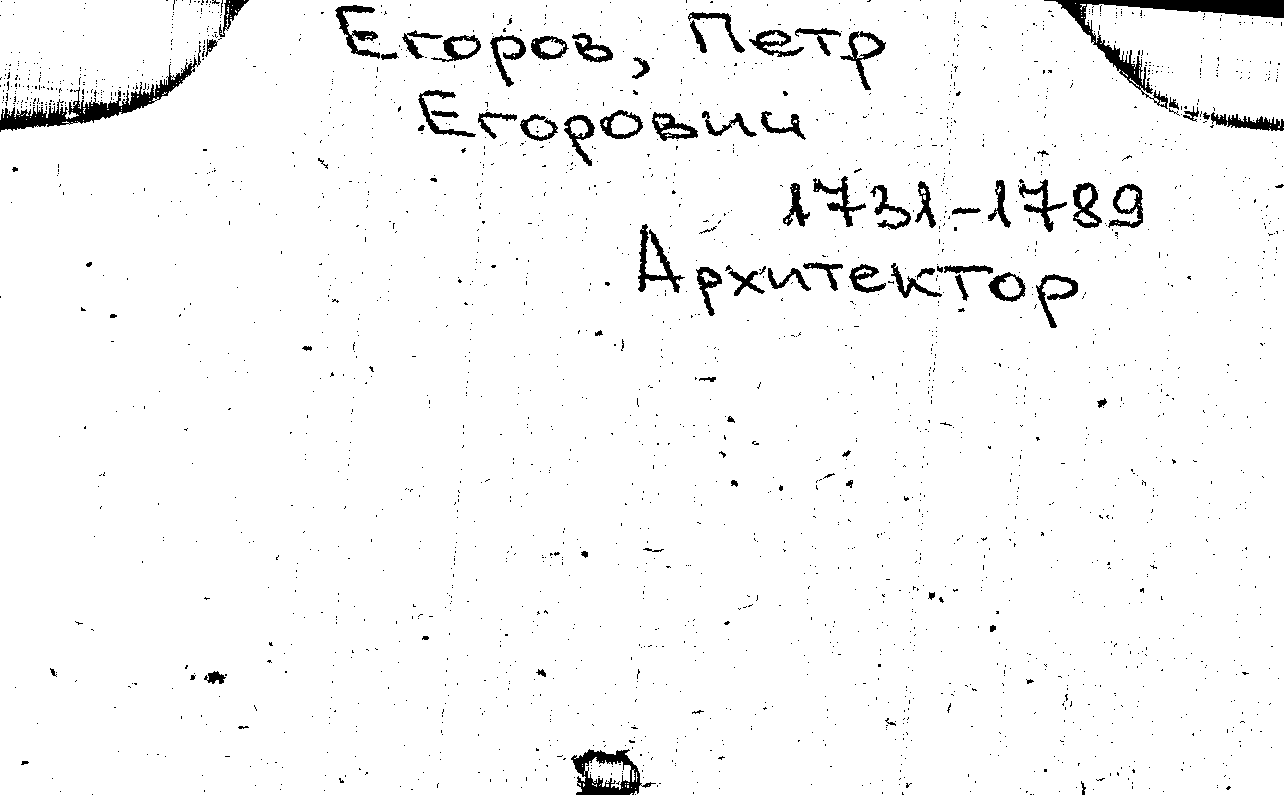 Егоров, Петр
Егорович
1731-1789
Архитектор